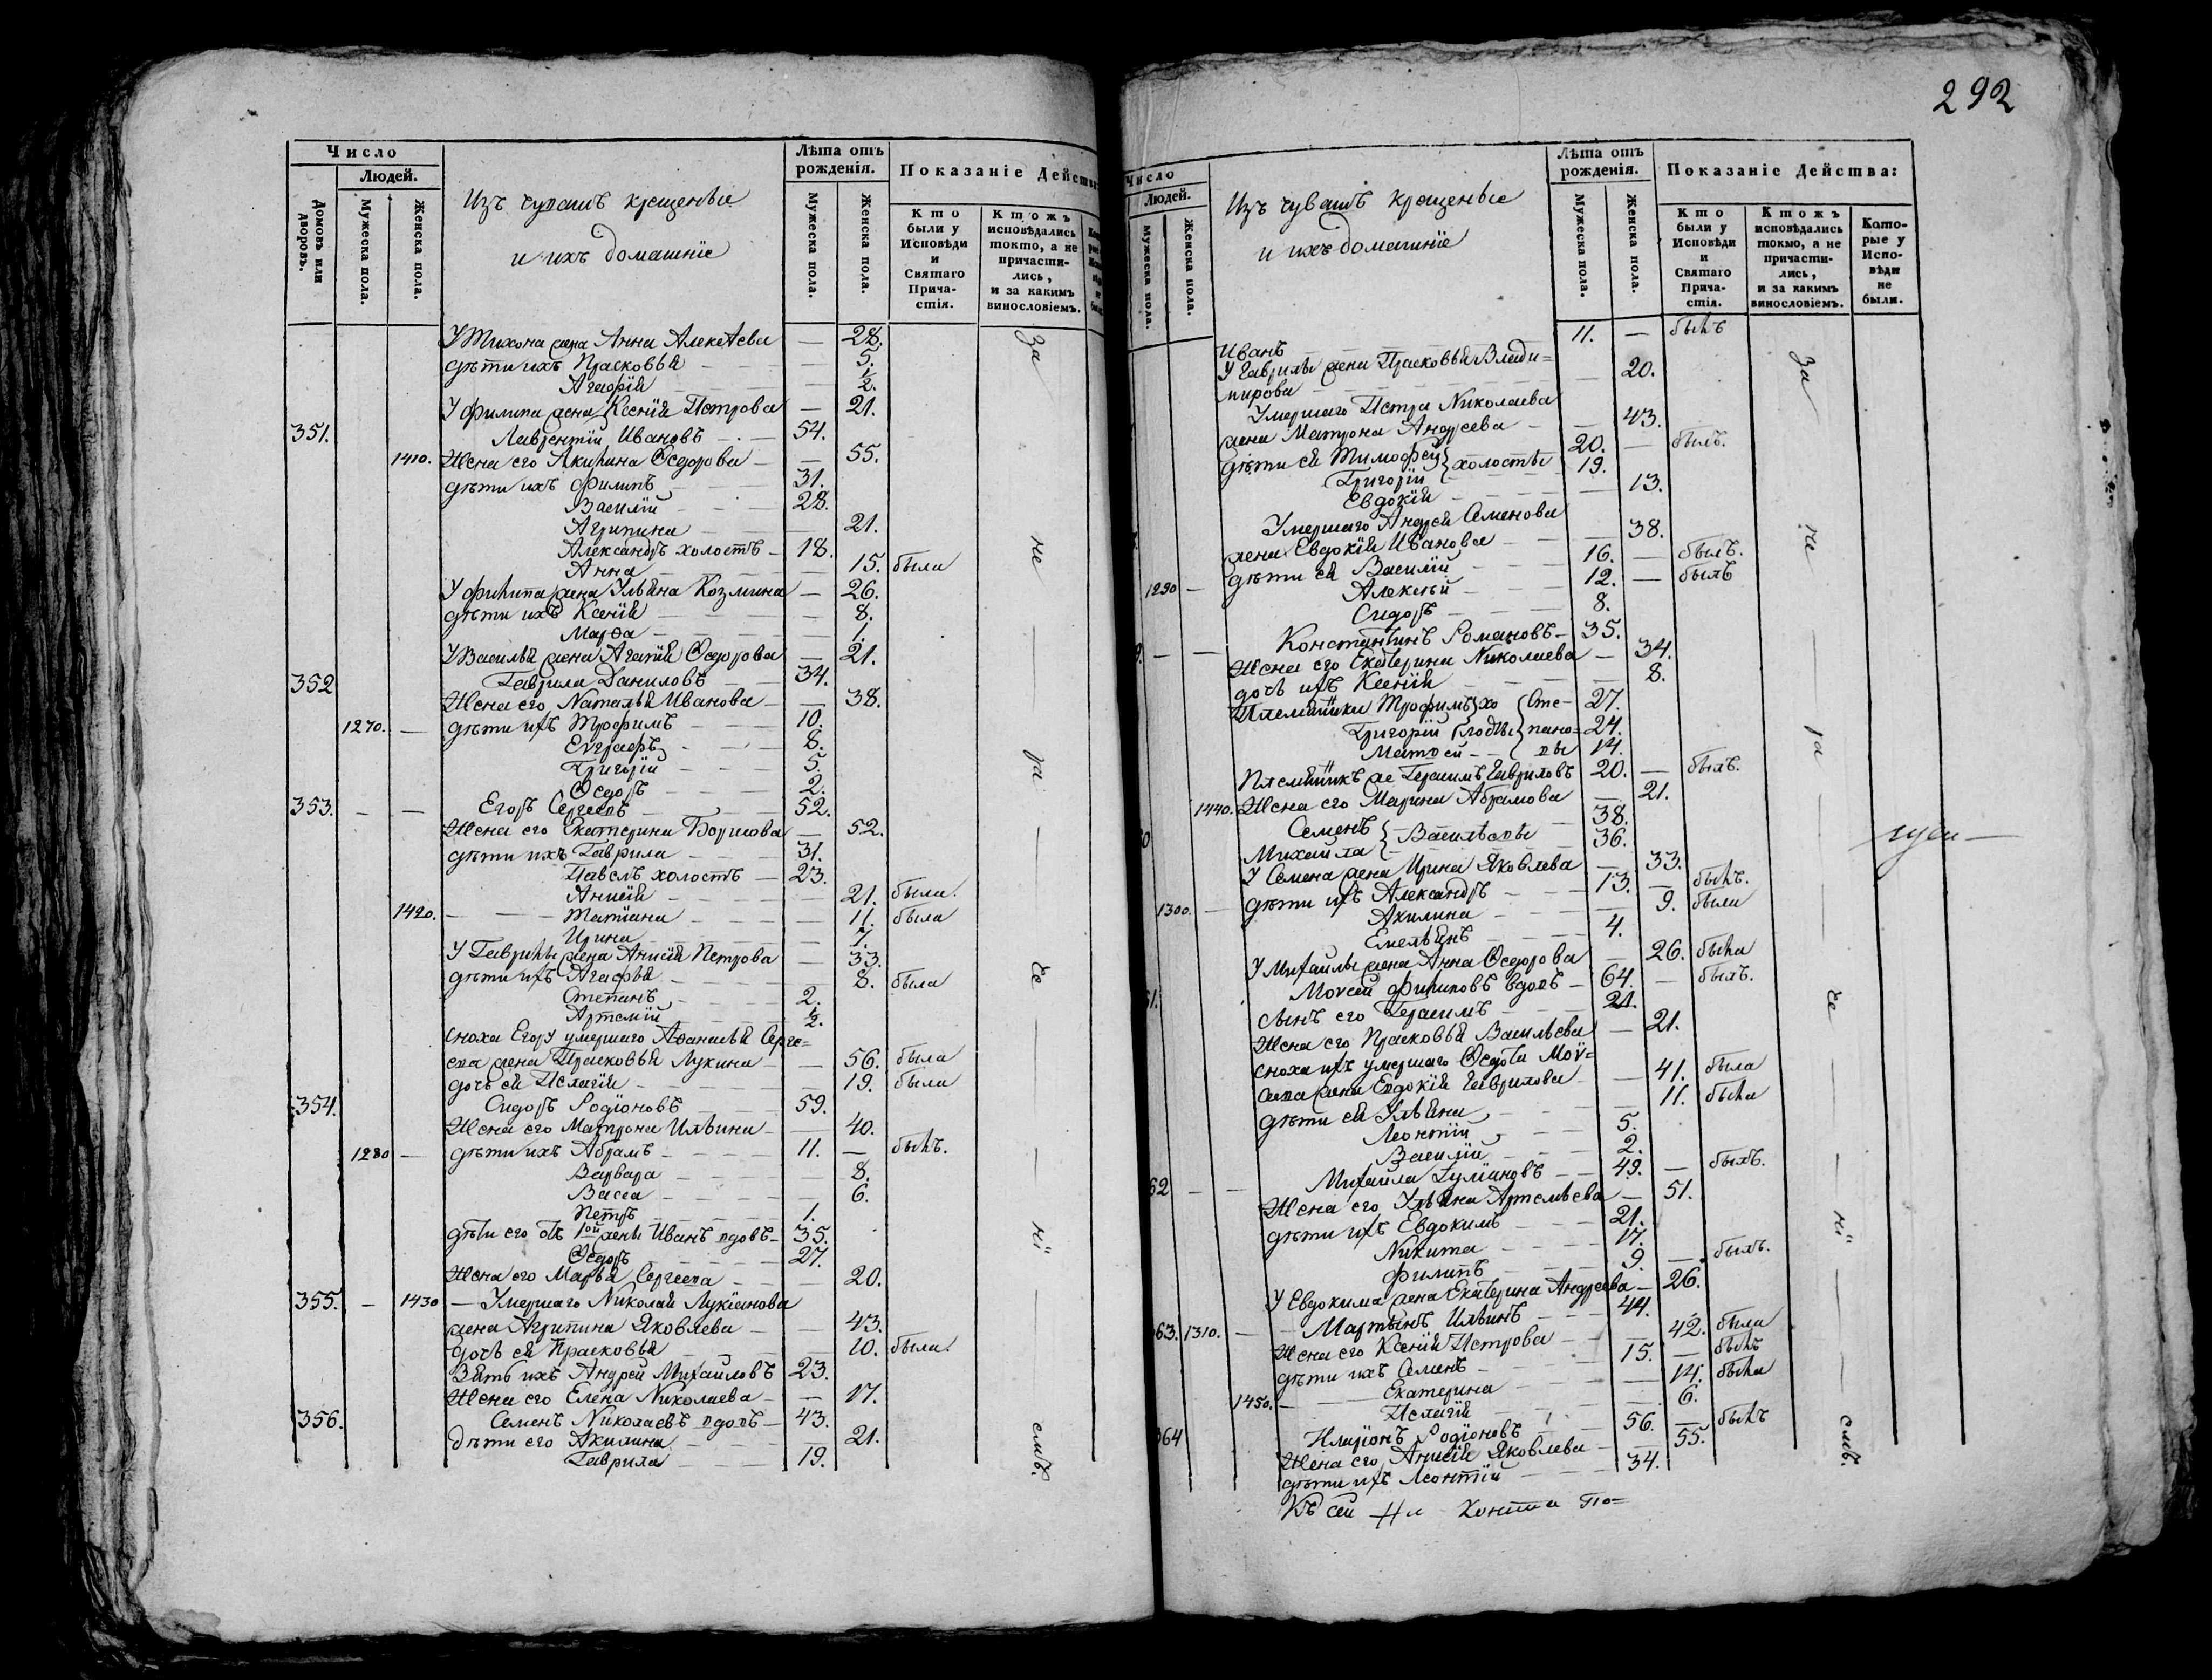 Число
Людей.
Домовъ или дворовъ.
Мужеска пола.
Женска пола.
Изъ чувашъ крещеные
и ихъ домашніе
Лѣта отъ рожденія.
Мужеска пола.
Женска пола.
Показаніе Действа:
Кто были у Исповѣди и Святаго Прича- стія.
Ктожъ исповѣдались токмо, а не причасти- лись, и за какимъ винословіемъ.
У Тихона жена Анна Алексѣева — 28.
дѣти ихъ Прасковья — 5.
Агафія — 1/2.
У Филипа жена Ксенія Петрова — 21.
351. Лаврентій Ивановъ — 54.
1410. Жена его Акилина Ѳедорова — 55.
дѣти ихъ Филипъ 31.
Василій 28.
Агрипина 21.
Александръ холостъ 18.
Анна 15. была
У Филипа жена Ульяна Козмина — 26.
дѣти ихъ Ксенія 8.
Марѳа 1.
У Василья жена Агапія Ѳедорова — 21.
352 Гаврила Даниловъ 34.
Жена его Наталья Иванова — 38.
1270. — дѣти ихъ Трофимъ 10.
Евграфъ 8.
Григорій 5.
Ѳедоръ 2.
353. — — Егоръ Сергеевъ 52.
Жена его Екатерина Борисова — 52.
дѣти ихъ Гаврила 31.
Павелъ холостъ — 23.
Анисія 21. была.
1420. — Татіана 11. была
Ирина 7.
У Гаврилы жена Анисія Петрова — 33.
дѣти ихъ Агафья 8. была
Степанъ 2.
Артемій 1/2.
сноха Егору умершаго Аѳанасья Серге=
ева жена Прасковья Лукина — 56. была
дочь ея Пелагія — 19. была
354. Сидоръ Родіоновъ 59.
Жена его Матрона Ильина — 40.
1280 — дѣти ихъ Абрамъ 11. — былъ.
Варвара 8.
Васса 6.
Петръ 1.
дѣти его отъ 1ой жены Иванъ вдовъ — 35.
Ѳедоръ 27.
Жена его Марья Сергеева 20.
355. — 1430 — Умершаго Николая Лукіанова
жена Агрипина Яковлева — 43.
дочь ея Прасковья 10. была.
Зять ихъ Андрей Михайловъ 23.
Жена его Елена Николаева — 17.
356. Семенъ Николаевъ вдовъ — 43.
дѣти его Акилина 21.
Гаврила 19.
за
не
ра
че
ні
емъ.
292
Число
Людей.
Мужеска пола.
Женска пола.
Изъ чувашъ крещеные
и ихъ домашніе
Лѣта отъ рожденія.
Мужеска пола.
Женска пола.
Показаніе Действа:
Кто были у Исповѣди и Святаго Прича- стія.
Ктожъ исповѣдались токмо, а не причасти- лись, и за какимъ винословіемъ.
Кото- рые у Испо- вѣди не были.
Иванъ 11. — былъ
У Гаврилы жена Прасковья Влади=
мирова — 20.
Умершаго Петра Николаева
жена Матрона Андреева — 43.
дѣти ея Тимофей } холосты 20. — былъ.
Григорій 19.
Евдокія — 13.
Умершаго Андрея Семенова
жена Евдокія Иванова — 38.
дѣти ея Василій 16. — былъ.
1290 — Алексѣй 12. — былъ
Сидоръ 8.
— — Константинъ Романовъ — 35.
Жена его Екатерина Николаева — 34.
дочь ихъ Ксенія 8.
Племянники Трофимъ } хо { Сте- 27.
Григорій } лосты { пано= 24.
Матѳей { вы 14.
Племянникъ же Герасимъ Гавриловъ 20. — былъ.
1440. Жена его Марина Абрамова — 21.
Семенъ } Васильевы 38.
Михайла 36.
У Семена жена Ирина Яковлева — 33.
1300. — дѣти ихъ Александръ 13. — былъ.
Акилина 9. была
Емельянъ 4.
У Михайлы жена Анна Ѳедорова — 26. была
Моѵсей Филиповъ вдовъ — 64. — былъ.
сынъ его Герасимъ 21.
Жена его Прасковья Васильева — 21.
сноха ихъ умершаго Ѳедота Моѵ=
сеева жена Евдокія Гаврилова — 41. была
дѣти ея Ульяна 11. была
Леонтій 5.
Василій 2.
62 — — Михайла Лукіановъ 49. — былъ.
Жена его Ульяна Артемьева — 51.
дѣти ихъ Евдокимъ 21.
Никита 17.
Филипъ 9. — былъ.
У Евдокима жена Екатерина Андреева — 26.
63. 1310. — Мартынъ Ильинъ 44.
Жена его Ксенія Петрова — 42. была
дѣти ихъ Семенъ 15. — былъ
1450. — Екатерина 14. была
Пелагія 6.
364 Иларіонъ Родіоновъ 56. — былъ
Жена его Анисія Яковлева — 55.
дѣти ихъ Леонтій 34.
за
не
ра
че
ні
емъ.
Къ сей